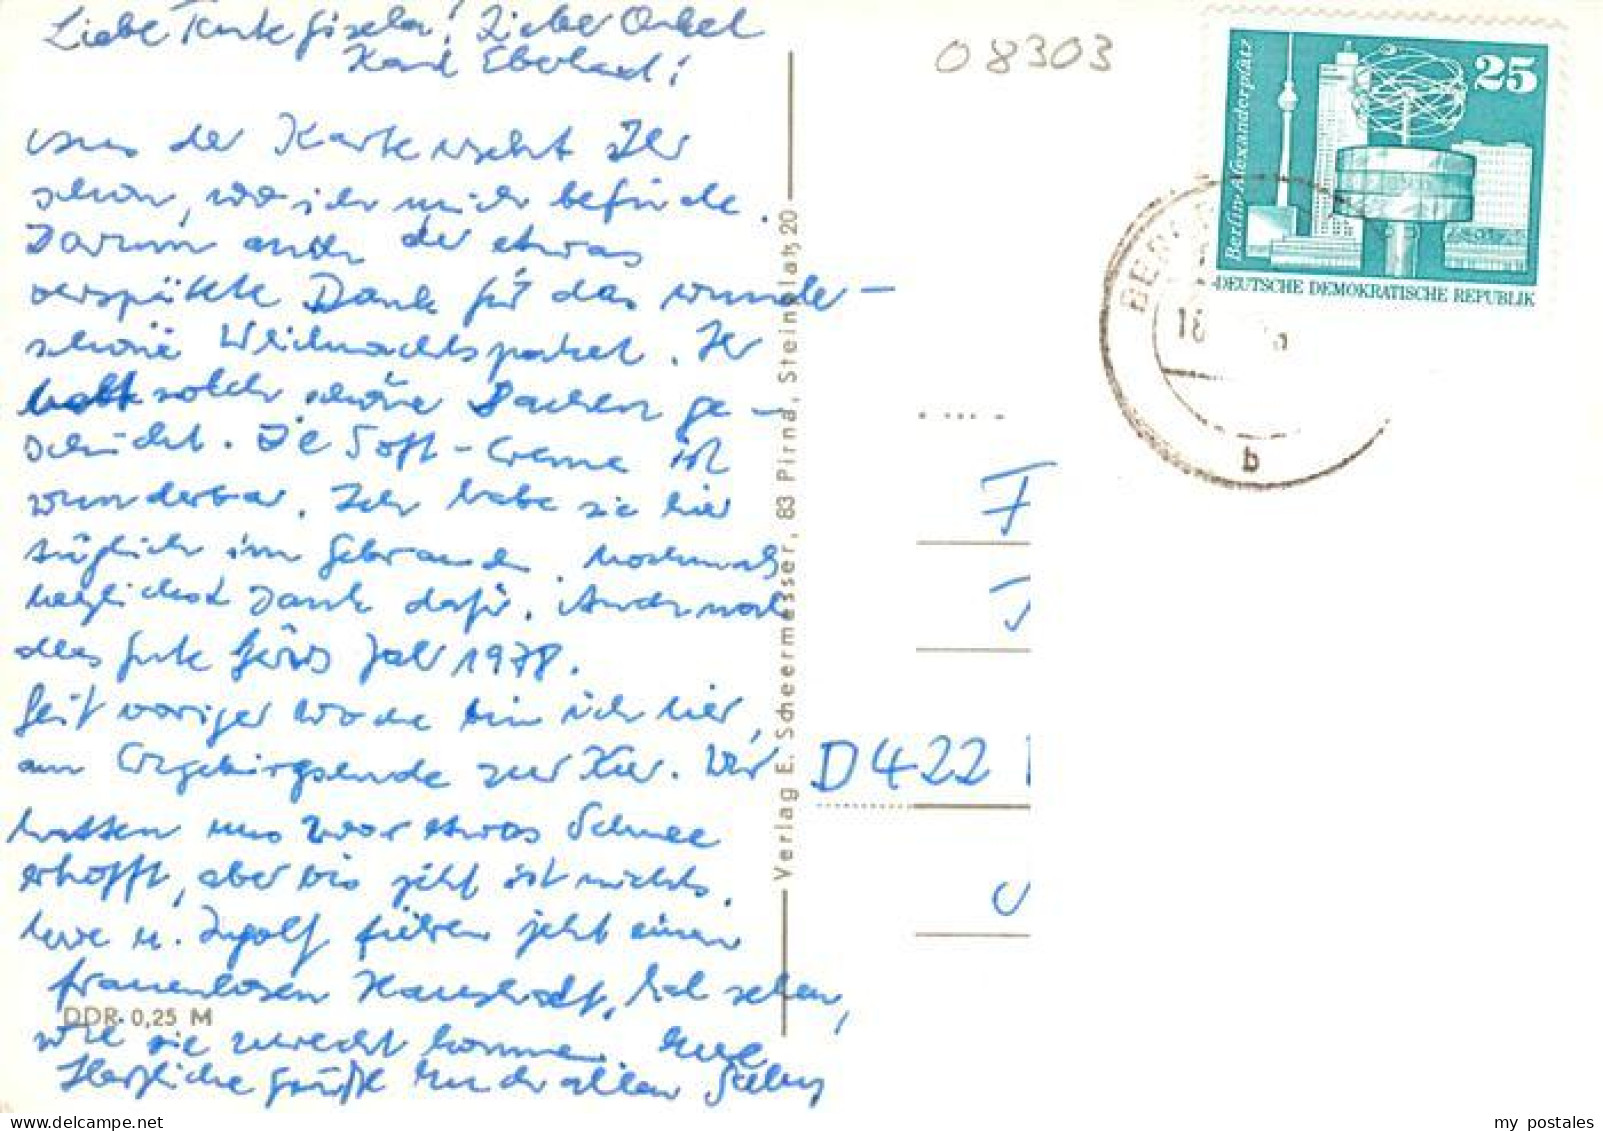 Liebe Tante Gisela! Lieber Onkel
Karl Eberhard!
aus der Karte erseht Ihr
schon, wo ich mich befinde.
Darum auch der etwas
verspätete Dank für das wunder-
schöne Weihnachtspaket. Ihr
habt solch schöne Sachen ge-
schickt. Die Soft-Creme ist
wunderbar. Ich habe sie hier
täglich im Gebrauch. Nochmals
herzlichst Dank dafür. Auch noch
alles Gute fürs Jahr 1978.
Seit voriger Woche bin ich hier,
am Erzgebirgsende zur Kur. Wir
hatten uns zwar etwas Schnee
erhofft, aber bis jetzt ist nichts.
Uwe u. Ingolf führen jetzt einen
frauenlosen Haushalt, mal sehen,
wie sie zurecht kommen. Eure
Herzliche Grüße Euch allen
DDR 0,25 M
Verlag E. Scheermesser, 83 Pirna, Steinplatz 20
08303
25
Berlin-Alexanderplatz
DEUTSCHE DEMOKRATISCHE REPUBLIK
18
b
F
D 422
my postales